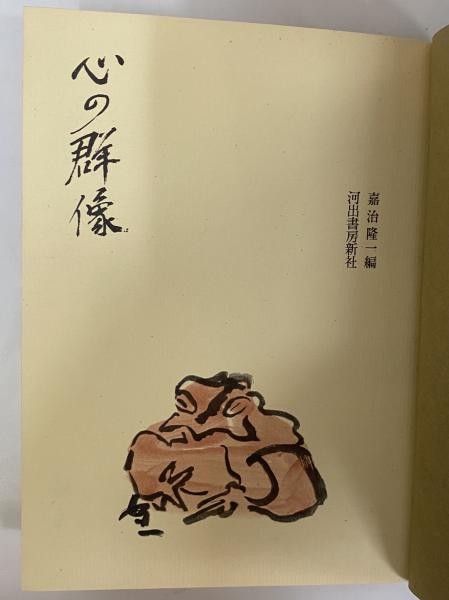 心の群像
嘉治隆一編
河出書房新社